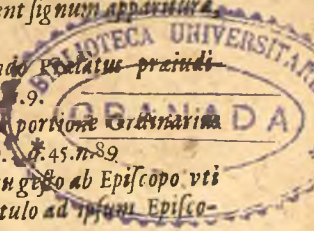 ent ſignum apparitura,
Prælatus præiudi-
.9.
portione Ordinarina
45.n.89
geſto ab Epiſcopo vti
tulo ad ipſum Epiſco-
BIBLIOTECA UNIVERSITA
GRANADA